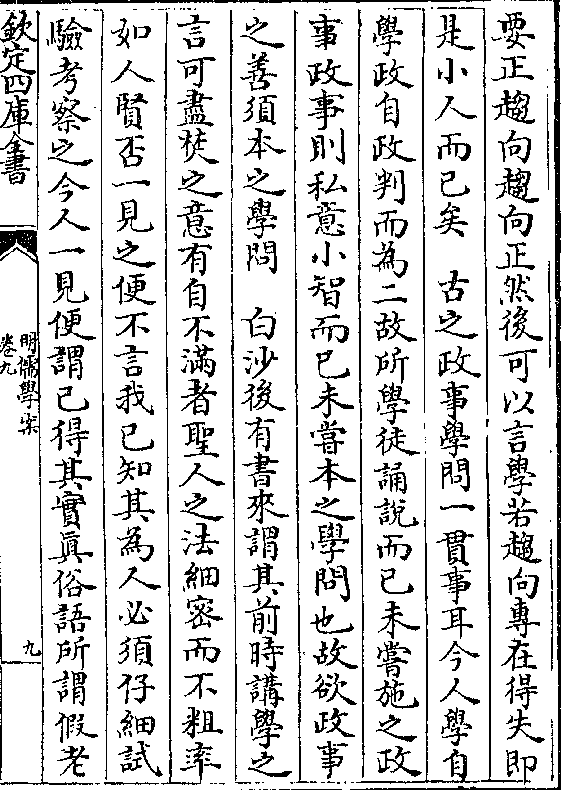 要正趨向趨向正然後可以言學若趨向專在得失即
是小人而已矣　古之政事學問一貫事耳今人學自
學政自政判而為二故所學徒誦說而已未嘗施之政
事政事則私意小智而已未嘗本之學問也故欲政事
之善須本之學問　白沙後有書來謂其前時講學之
言可盡焚之意有自不滿者聖人之法細密而不粗率
如人賢否一見之便不言我已知其為人必須仔細試
驗考察之今人一見便謂已得其實眞俗語所謂假老
欽定四庫全書
明儒學案
卷九
九